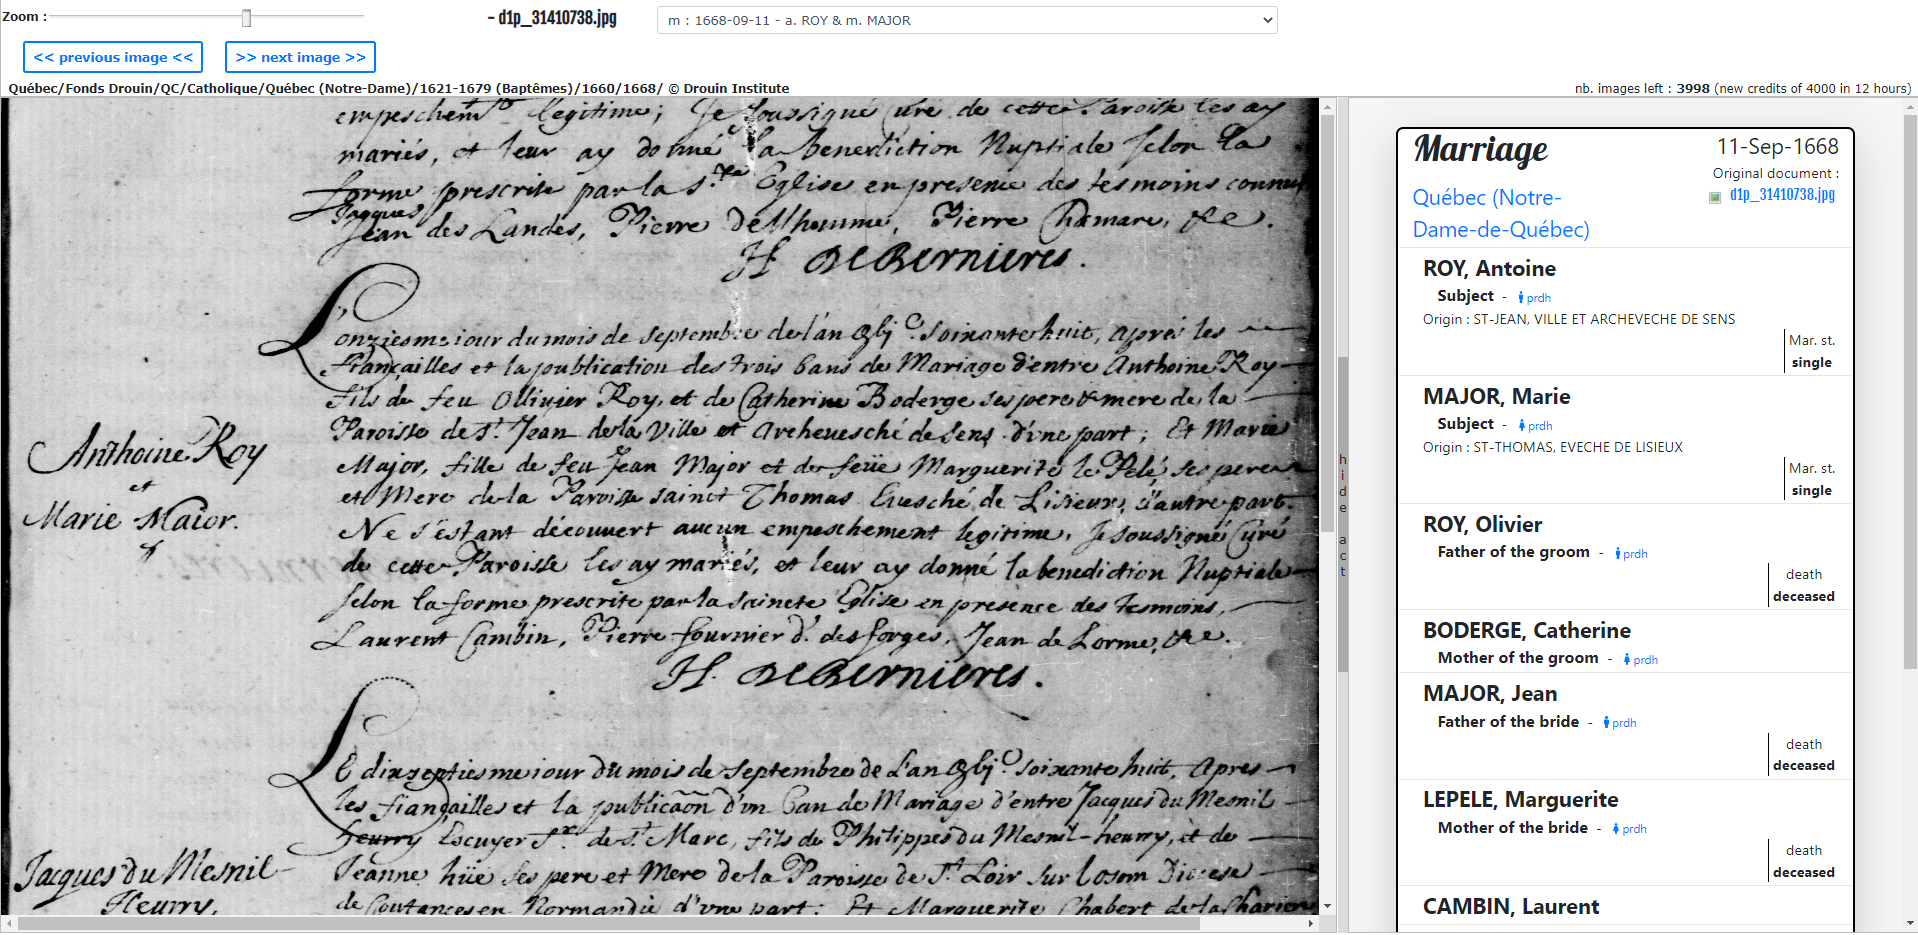 Zoom :
- d1p_31410738.jpg
m : 1668-09-11 - a. ROY & m. MAJOR
<< previous image <<
>> next image >>
Québec/Fonds Drouin/QC/Catholique/Québec (Notre-Dame)/1621-1679 (Baptêmes)/1660/1668/ © Drouin Institute
nb. images left : 3998 (new credits of 4000 in 12 hours)
empeschemt legitime; Je soussigné Curé de cette Paroisse les ay
mariés, et leur ay donné la benediction Nuptiale selon la
forme prescrite par la Ste Eglise en presence des tesmoins connus
Jacques
Jean des Landes, Pierre de Lhomme, Pierre Chamare, &c.
H. de Bernieres.
L'onziesme iour du mois de septembre de l'an gbjc. soixante huit, apres les
fiançailles et la publication des trois bans de Mariage d'entre Anthoine Roy
fils de feu Ollivier Roy, et de Catherine Boderge ses pere & mere de la
Paroisse de St. Jean de la Ville et Archevesché de Sens d'une part; Et Marie
Major, fille de feu Jean Major et de feüe Marguerite le Pelé ses pere
et Mere de la Paroisse sainct Thomas Evesché de Lisieux, d'autre part.
Ne s'éstant découvert aucun empeschement legitime, Je soussigné Curé
de cette Paroisse les ay mariés, et leur ay donné la benediction Nuptiale
selon la forme prescrite par la saincte Eglise en presence des tesmoins,
Laurent Cambin, Pierre fournier d. des forges, Jean de Lorme, &c.
H. de Bernieres.
Anthoine Roy
et
Marie Maior.
Le dixseptiesme iour du mois de Septembre de L'an gbjc. soixante huit, Apres
les fiançailles et la publicaõn d'un ban de Mariage d'entre Jacques du Mesnil
heurry Escuyer Sr. de St. Marc, fils de Philippes du Mesnil-heurry, et de
Jeanne hüe ses pere et Mere de la Paroisse de St. Loir sur Diocese
de Coutances en Normandie d'une part; Et Marguerite Chabert de la
Jacques du Mesnil
Heurry.
hide act
Marriage
11-Sep-1668
Original document :
d1p_31410738.jpg
Québec (Notre-
Dame-de-Québec)
ROY, Antoine
Subject - prdh
Origin : ST-JEAN, VILLE ET ARCHEVECHE DE SENS
Mar. st.
single
MAJOR, Marie
Subject - prdh
Origin : ST-THOMAS, EVECHE DE LISIEUX
Mar. st.
single
ROY, Olivier
Father of the groom - prdh
death
deceased
BODERGE, Catherine
Mother of the groom - prdh
MAJOR, Jean
Father of the bride - prdh
death
deceased
LEPELE, Marguerite
Mother of the bride - prdh
death
deceased
CAMBIN, Laurent